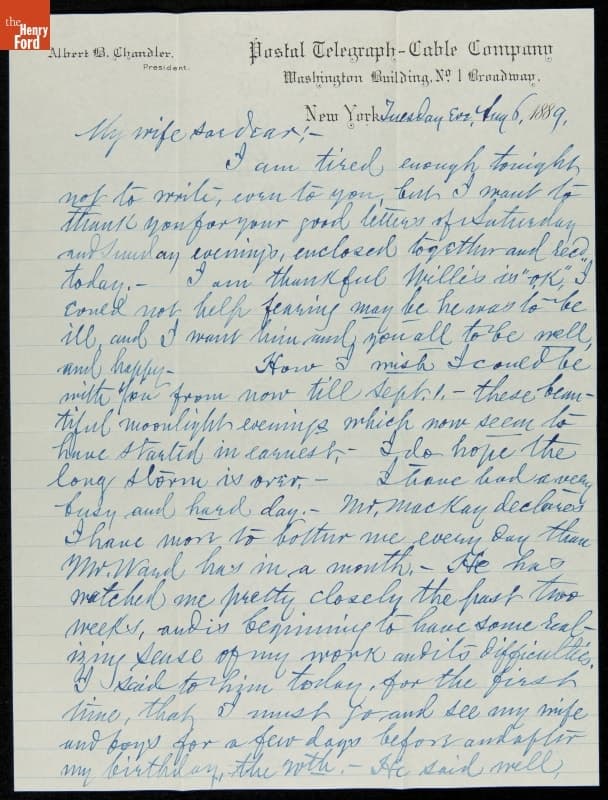 the
Henry
Ford
Albert B. Chandler,
President.
Postal Telegraph-Cable Company
Washington Building, No 1 Broadway.
New York, Tuesday Eve, Aug 6, 1889.
My wife so dear;-
I am tired enough tonight
not to write, even to you, but I want to
thank you for your good letters of Saturday
and Sunday evenings, enclosed together and recd
today. - I am thankful Willis is "ok", I
could not help fearing may be he was to be
ill, and I want him and you all to be well,
and happy - How I wish I could be
with you from now till Sept 1. - these beau-
tiful moonlight evenings which now seem to
have started in earnest. - I do hope the
long storm is over. - I have had a very
busy and hard day. - Mr. MacKay declares
I have more to bother me every day than
Mr. Ward has in a month. - He has
watched me pretty closely the past two
weeks, and is beginning to have some real-
izing sense of my work and its difficulties.
I said to him today, for the first
time, that I must go and see my wife
and boys for a few days before and after
my birthday, the 20th. - He said well,